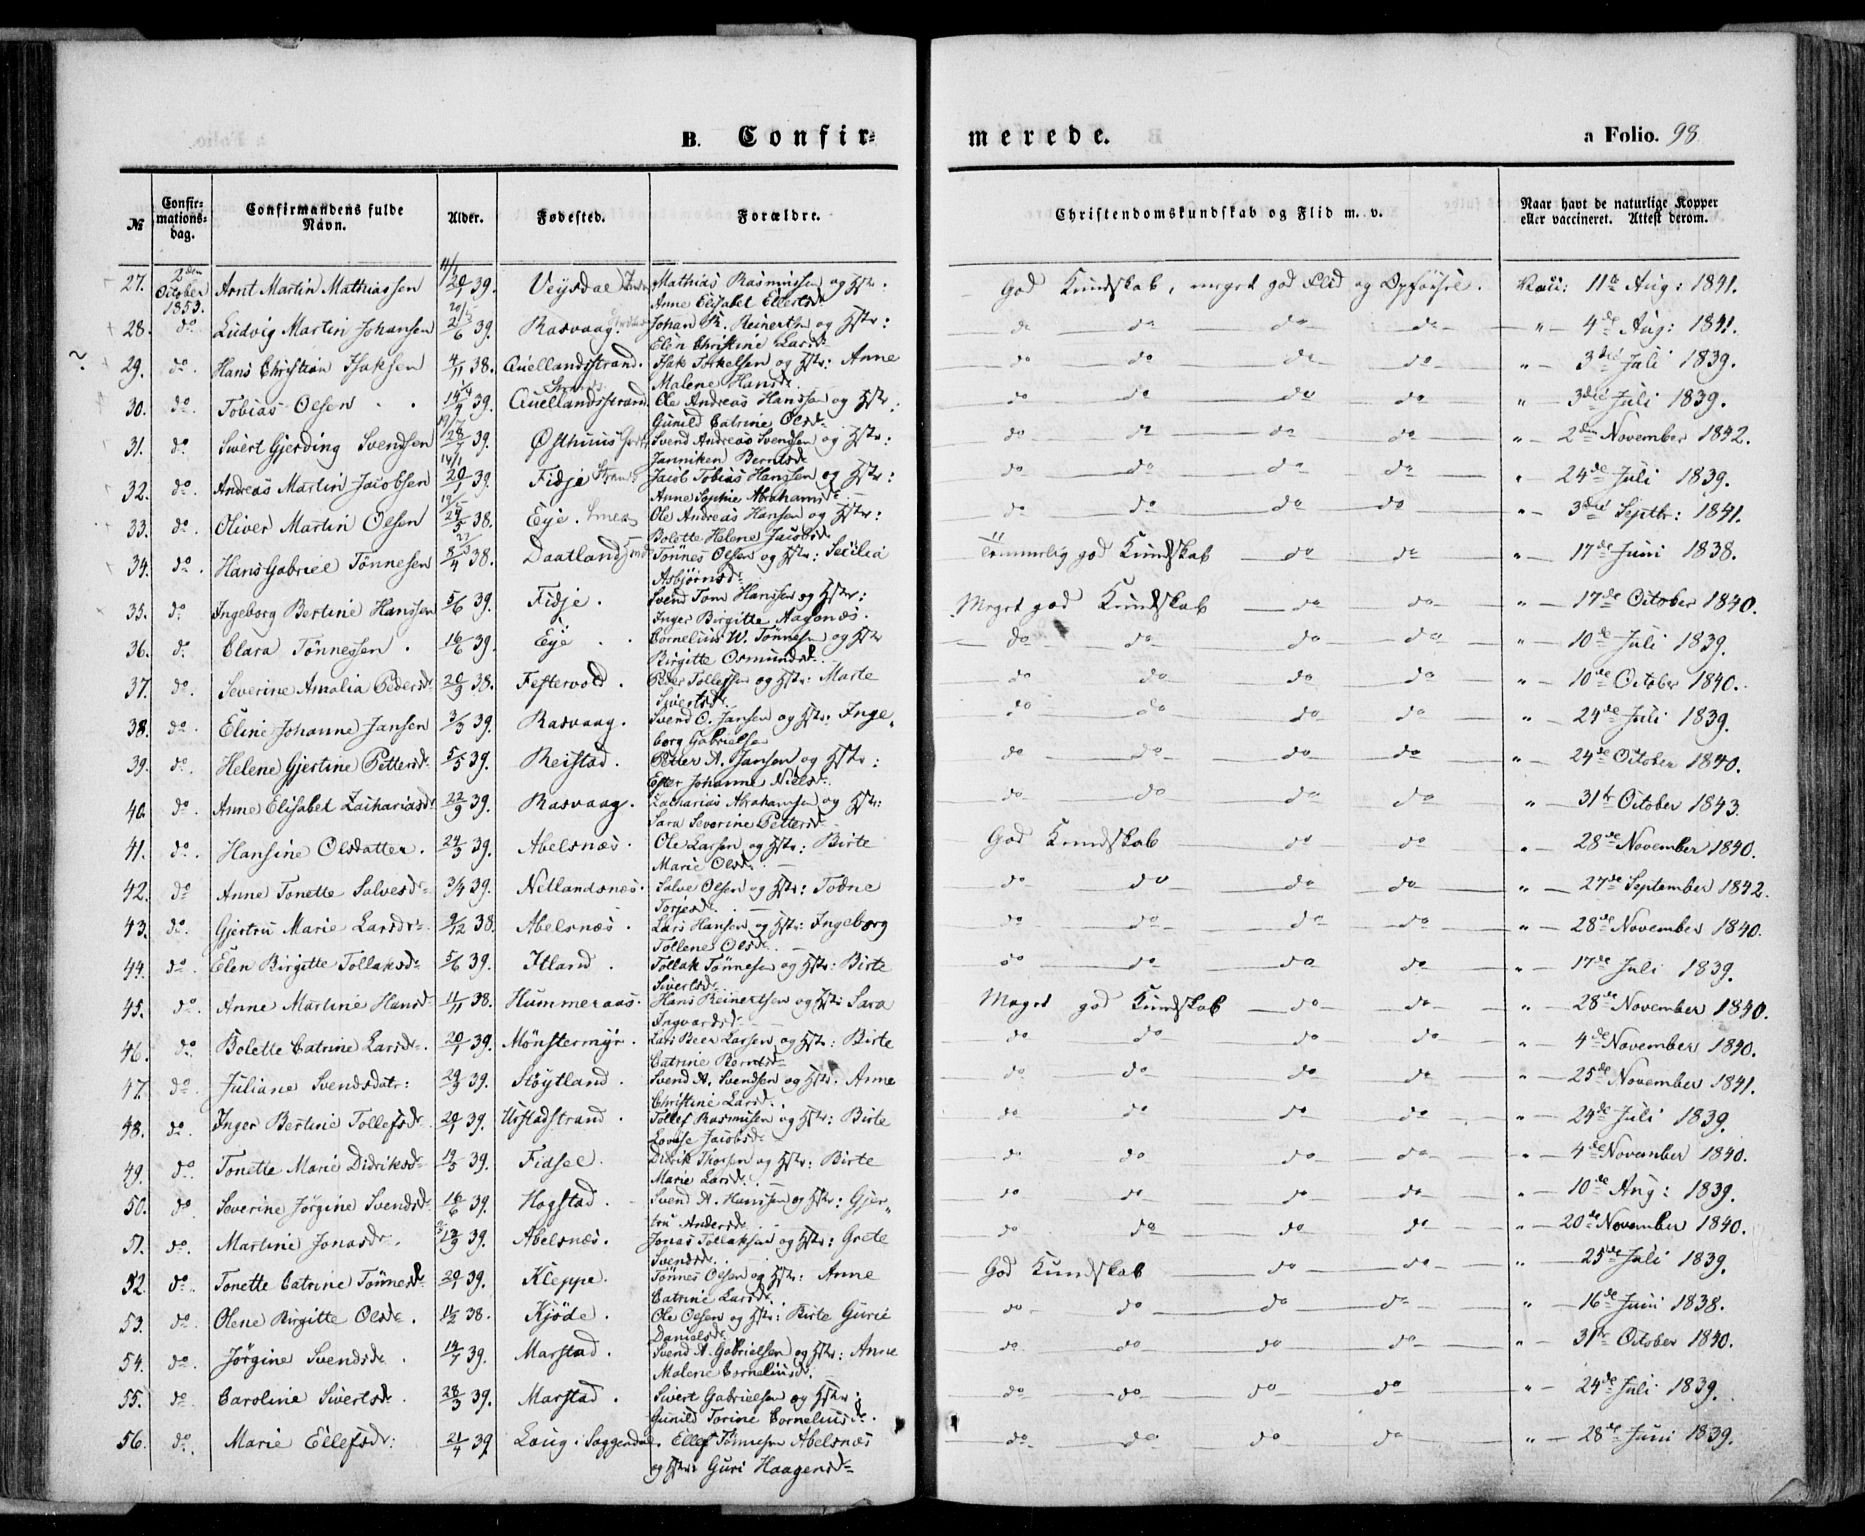 B. Confirmerede. a Folio. 98
№ Confirmationsdag. Confirmandens fulde Navn. Alder. Fødested. Forældre. Christendomskundskab og Flid m. v. Naar havt de naturlige Kopper eller vaccineret. Attest derom.
27. 2den October 1853. Arnt Martin Mathiassen 20/ 39. Veisdal Mathias Rasmussen og Hstr. Anne Elisabet Ellertsd. God Kundskab, meget god Flid og Opførsel. Vacc: 11te Aug: 1841.
28. do Ludvig Martin Johansen 21/6 39. Rasvaag. Johan R. Reinerth og Hstr: Elen Christine Larsd. do do do do " 4de Aug: 1841.
29. do. Hans Christian Isaksen 4/11 38. Qvellandsstrand. Isak Torkelsen og Hstr: Anne Malene Hansd. do do do do " 3die Juli 1839.
30. do. Tobias Olsen 39. Qvellandsstrand Ole Andreas Hanssen og Hstr: Gunild Catrine Olsd. do do do do " 3die Juli 1839.
31. do Sivert Gjerding Svendsen 28/ 39. Østhuus Svend Andreas Svendsen og Hstr: Janniken Berntsd. do do do do " 2den November 1842.
32. do. Andreas Martin Jacobsen 20/1 39 Fidje Strand Jacob Tobias Hanssen og Hstr: Anne Sophie Abrahamsd. do do do do " 24de Juli 1839.
33. do. Oliver Martin Olsen 24/5 38. Eje. Ole Andreas Hansen og Hstr: Bolette Helene Jacobsd. do do do do " 3die Septbr: 1841.
34. do. Hans Gabriel Tønnesen 8/4 38. Daatland Tønnes Olsen og Hstr: Secilia Asbjørnsd. Temmelig god Kundskab do do " 17de Juni 1838.
35. do Ingeborg Bertine Hanssen 5/6 39. Fidje. Svend Tom Hanssen og Hstr: Inger Birgitte Aagonæs. Meget god Kundskab do do " 17de October 1840.
36. do Clara Tønnessen. 16/6 39. Eje. Cornelius W. Tønnesen og Hstr Birgitte Osmundsd. do do do do " 10de Juli 1839.
37. do. Severine Amalia Pedersd. 20/9 38. Festervold. Peder Tollefsen og Hstr: Marte Sivertsd. do do do do " 10de October 1840.
38. do. Eline Johanne Jansen 3/3 39. Rasvaag. Svend O. Jansen og Hstr: Ingeborg Gabrielsen do do do do " 24de Juli 1839.
39. do. Helene Gjertine Pettersd. 5/5 39. Reistad. Petter A. Jansen og Hstr: Ester Johanne Nielsd. do do do do " 24de October 1840.
40. do. Anne Elisabet Zachariasd. 22/9 39. Rasvaag. Zacharias Abrahamsen og Hstr: Sara Severine Pettersd. do do do do " 31te October 1843.
41. do. Hansine Olsdatter. 24/3 39. Abelsnæs. Ole Larsen og Hstr: Birte Marie Olsd. God Kundskab do do " 28de November 1840.
42. do Anne Tonette Salvesd. 3/4 39. Netlandsnes. Salve Olsen og Hstr: Todne Torjesd. do do do do " 27de September 1842.
43. do. Gjertru Marie Larsdr. 9/12 38. Abelsnæs. Lars Hansen og Hstr: Ingeborg Tollene Olsd. do do do do " 28de November 1840.
44. do. Elen Birgitte Tollaksd. 5/6 39. Itland. Tollak Tønnesen og Hstr: Birte Sivertsd. do do do do " 17de Juli 1839.
45. do. Anne Martine Hansd. 11/11 38. Hummeraas. Hans Reinertsen og Hstr: Sara Ingvardsd. Meget god Kundskab do do " 28de November 1840.
46. do. Bolette Catrine Larsd. 20/1 39. Mønstermyr. Lars Beer Larsen og Hstr: Birte Catrine Berntsd. do do do do " 4de November 1840.
47. do. Juliane Svendsdatr: 29/3 39. Støytland. Svend A. Svendsen og Hstr: Anne Christine Larsd. do do do do " 25de November 1841.
48. do. Inger Bertine Tollefsd. 20/1 39. Urstadstrand. Tollef Rasmusen og Hstr: Birte Lovise Jacobsd. do do do do " 24de Juli 1839.
49. do. Tonette Marie Didriksd. 14/5 39. Fidsel. Didrik Thorsen og Hstr: Birte Marie Larsd. do do do do " 4de November 1840.
50. do Severine Jørgine Svendsd. 16/6 39. Hogstad. Svend A. Hanssen og Hstr: Gjertru Andersd. do do do do " 10de Aug: 1839.
51. do. Martine Jonasd. 39. Abelsnæs. Jonas Tollaksen og Hstr: Grete Svendsd. do do do do " 20de November 1840.
52. do. Tonette Catrine Tønnesd. 20/1 39. Kleppe. Tønnes Olsen og Hstr: Anne Catrine Larsd. God Kundskab do do " 25de Juli 1839.
53. do. Olene Birgitte Olsd. 11/2 38. Kjøde. Ole Olsen og Hstr: Birte Gurie Danielsd. do do do do " 16de Juni 1838.
54. do. Jørgine Svendsd. 14/7 39. Marstad. Svend A. Gabrielsen og Hstr: Anne Malene Corneliusd. do do do do " 31te October 1840.
55. do. Caroline Sivertsd. 28/3 39. Marstad. Sivert Gabrielsen og Hstr: Gunild Torine Corneliusd. do do do do " 24de Juli 1839.
56. do. Marie Ellefsdr: 21/4 39 Loug i Soggendal. Ellef Tønnesen Abelsnæs og Hstr: Guri Haagensd. do do do do " 28de Juni 1839.